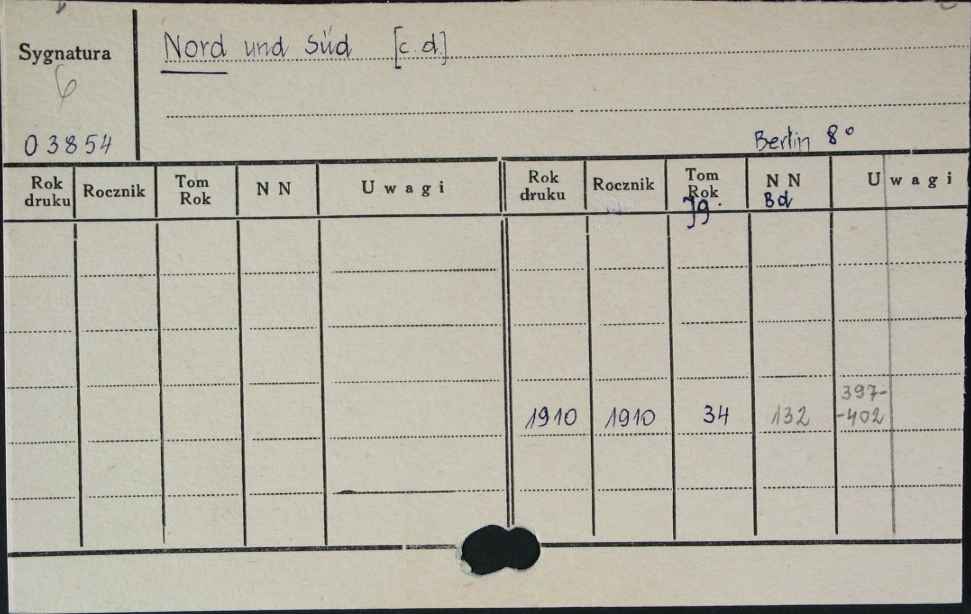 Sygnatura
6
03854
Nord und Süd [c.d.]
Berlin 8°
Rok druku Rocznik Tom Rok NN Uwagi Rok druku Rocznik Tom Rok NN Uwagi
Jg. Bd
1910 1910 34 132 397-
-402